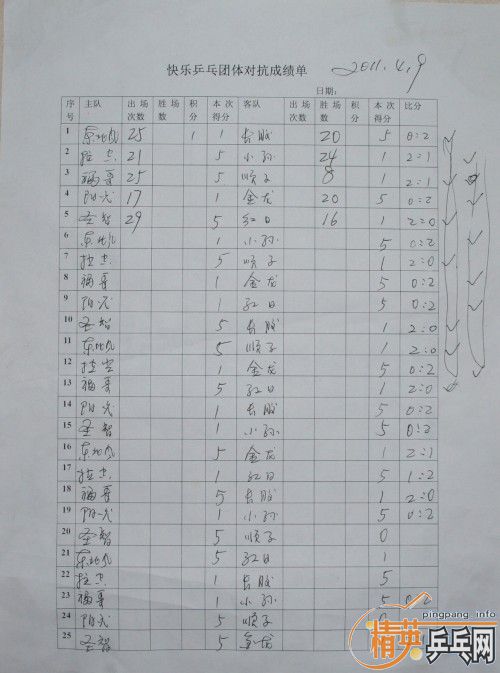 快乐乒乓团体对抗成绩单 2011.4.9
日期：
序号 主队 出场次数 胜场数 积分 本次得分 客队 出场次数 胜场数 积分 本次得分 比分
1 东北风 25 1 1 长胶 20 5 0:2
2 拉杰 21 5 小孙 24 1 2:1
3 福哥 25 5 顺子 8 1 2:1
4 阳光 17 1 金龙 20 5 0:2
5 圣智 29 5 红日 16 1 2:0
6 东北风 1 小孙 5 0:2
7 拉杰 5 顺子 1 2:0
8 福哥 1 金龙 5 0:2
9 阳光 1 红日 5 0:2
10 圣智 5 长胶 1 2:0
11 东北风 5 顺子 1 2:0
12 拉杰 1 金龙 5 0:2
13 福哥 5 红日 1 2:0
14 阳光 1 长胶 5 0:2
15 圣智 1 小孙 5 0:2
16 东北风 5 金龙 1 2:1
17 拉杰 1 红日 5 1:2
18 福哥 5 长胶 1 2:0
19 阳光 1 小孙 5 0:2
20 圣智 5 顺子 0
21 东北风 5 红日 1
22 拉杰 1 长胶 5
23 福哥 1 小孙 5 0:2
24 阳光 5 顺子 0
25 圣智 5 金龙
pingpang.info
精英乒乓网